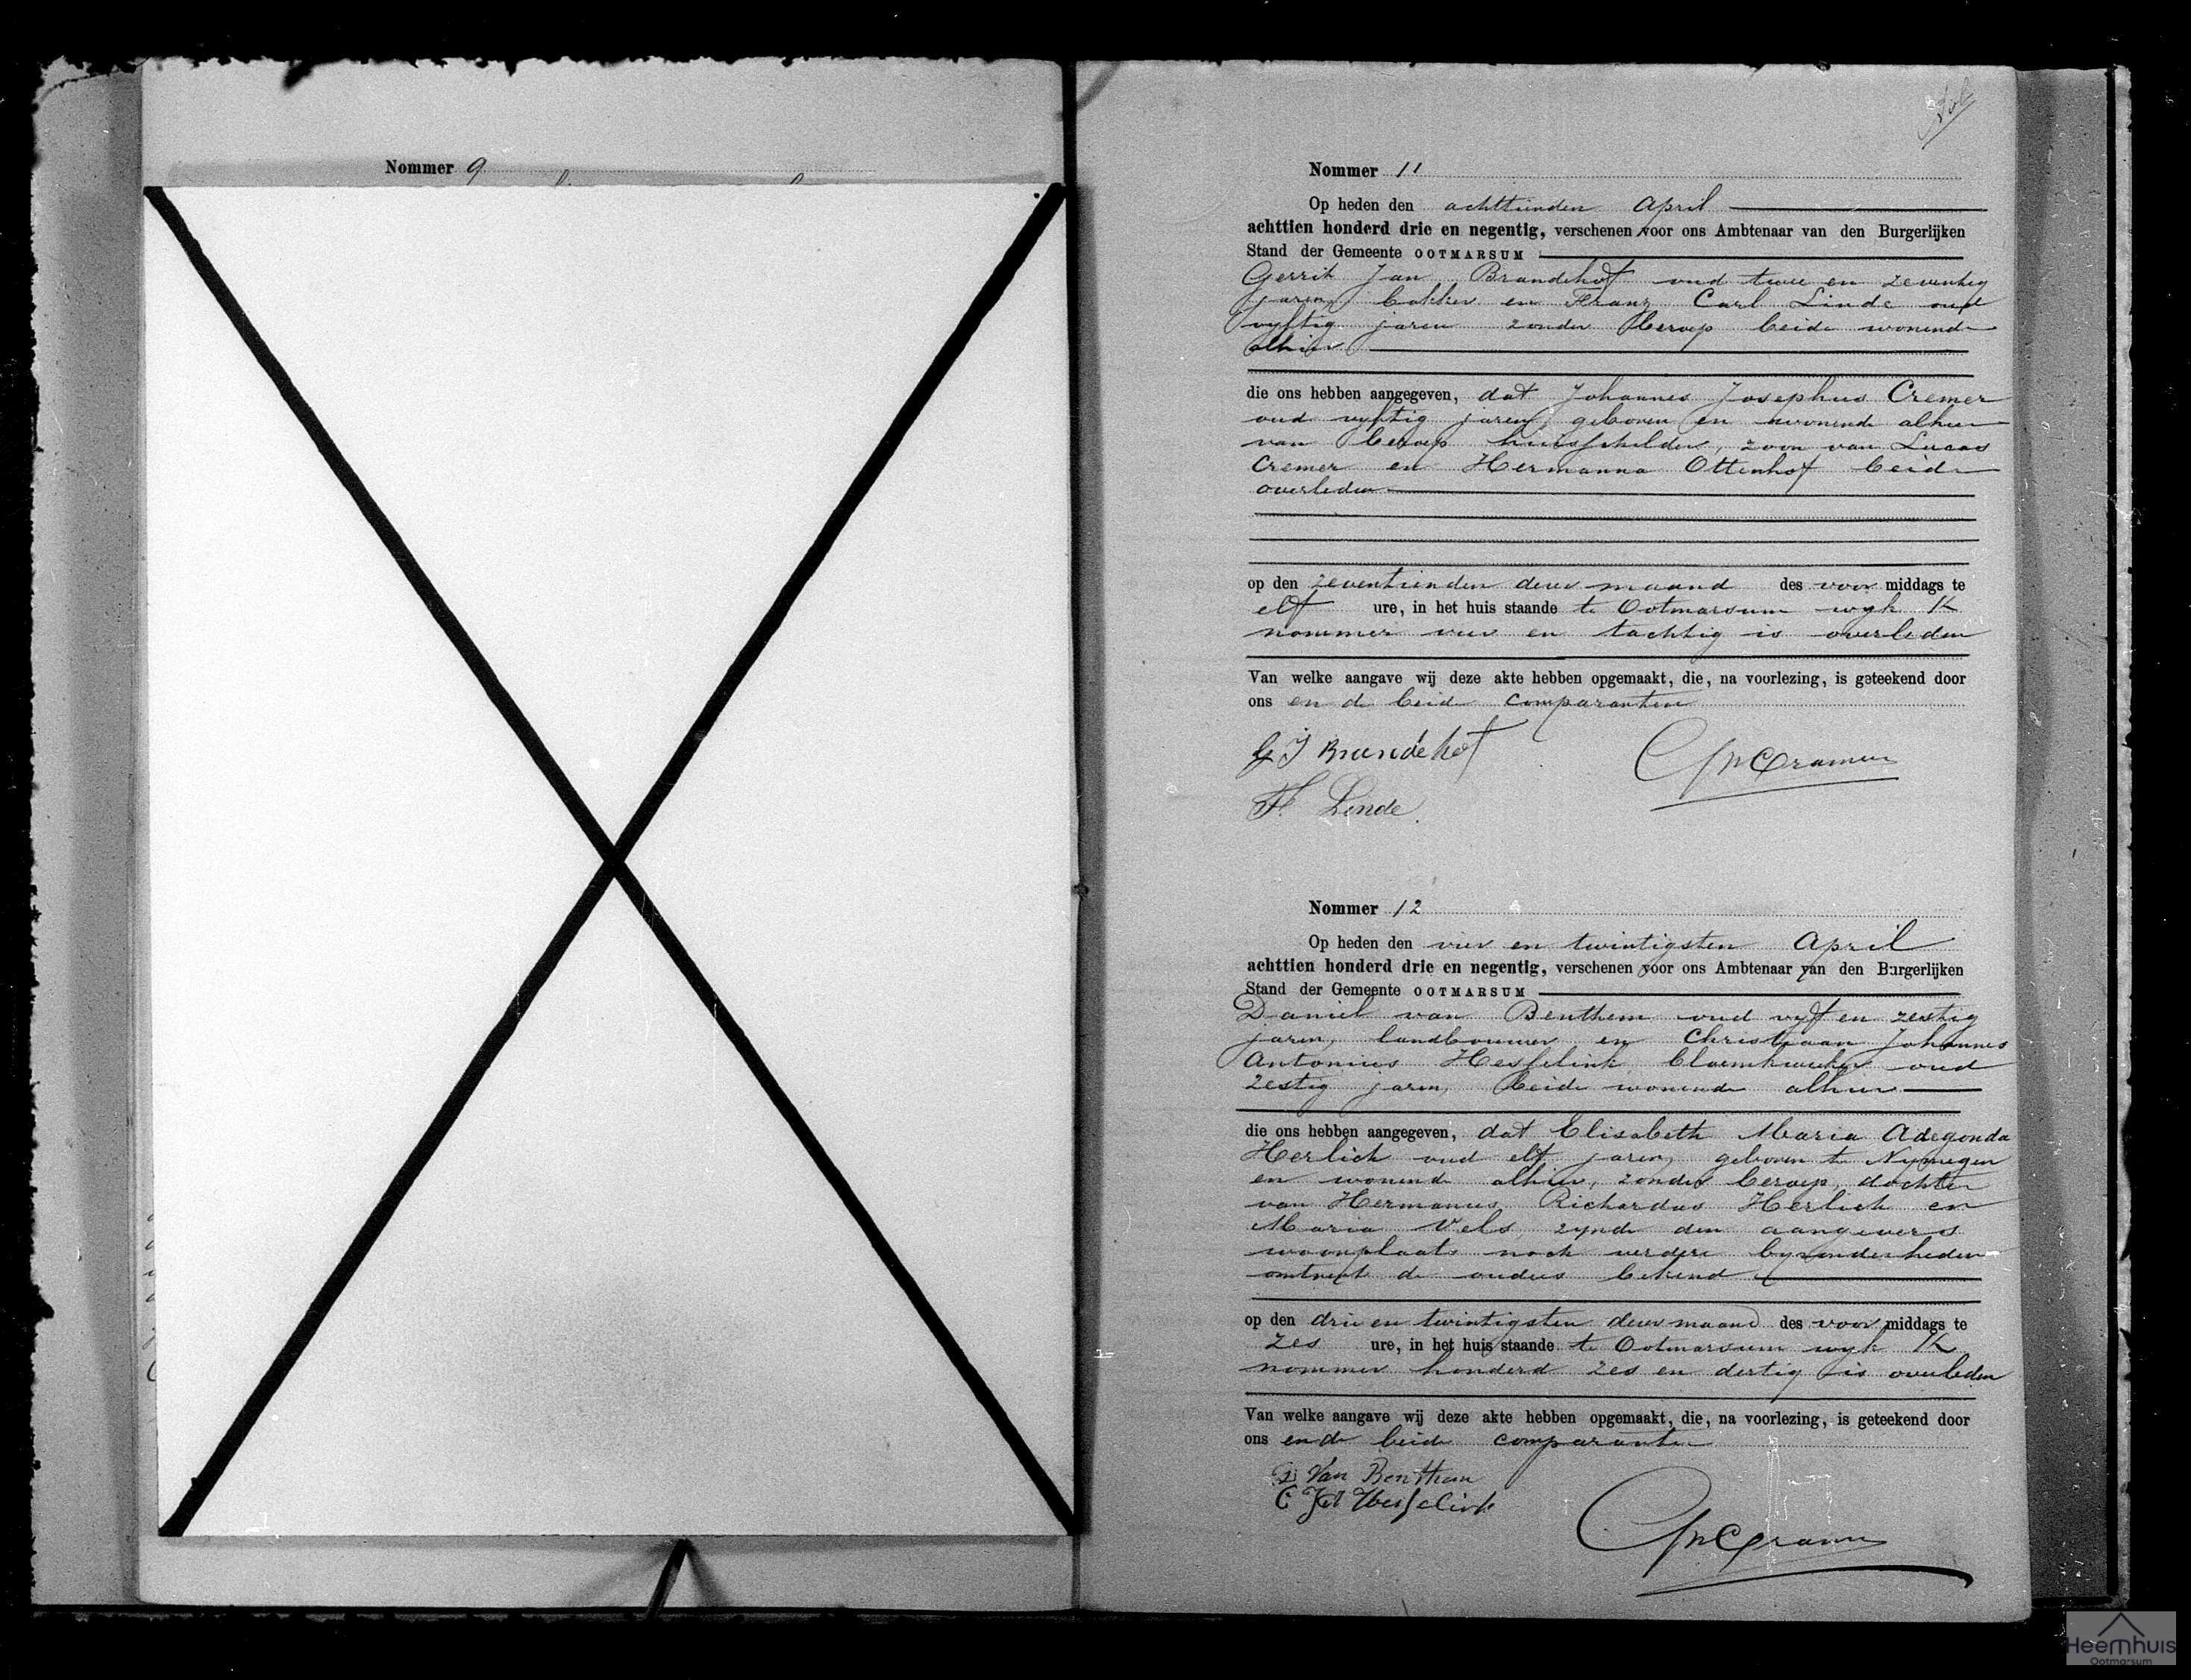 Nommer 9
Nommer 11
Op heden den achttienden April
achttien honderd drie en negentig, verschenen voor ons Ambtenaar van den Burgerlijken
Stand der Gemeente OOTMARSUM
Gerrit Jan Brandehof oud twee en zeventig
jaren, bakker en Franz Carl Linde oud
vyftig jaren zonder beroep beide wonende
alhier
die ons hebben aangegeven, dat Johannes Josephus Cremer
oud vyftig jaren, geboren en wonende alhier
van beroep huisschilder, zoon van Lucas
Cremer en Hermanna Ottenhof beide
overleden
op den zeventienden dezer maand des voor middags te
elf ure, in het huis staande te Ootmarsum wyk K
nommer vier en tachtig is overleden
Van welke aangave wij deze akte hebben opgemaakt, die, na voorlezing, is geteekend door
ons en de beide comparanten
G J Brandehof
F. Linde.
Nommer 12
Op heden den vier en twintigsten April
achttien honderd drie en negentig, verschenen voor ons Ambtenaar van den Burgerlijken
Stand der Gemeente OOTMARSUM
Daniel van Benthem oud vyf en zestig
jaren, landbouwer en Christiaan Johannes
Antonius Hesselink bloemkweeker oud
zestig jaren, beide wonende alhier
die ons hebben aangegeven, dat Elisabeth Maria Adegonda
Herlich oud elf jaren, geboren te Nymegen
en wonende alhier, zonder beroep, dochter
van Hermanus Richardus Herlich en
Maria Vels, zynde den aangevers
woonplaats noch verdere byzonderheden
omtrent de ouders bekend
op den drie en twintigsten dezer maand des voor middags te
zes ure, in het huis staande te Ootmarsum wyk K
nommer honderd zes en dertig is overleden
Van welke aangave wij deze akte hebben opgemaakt, die, na voorlezing, is geteekend door
ons en de beide comparanten
D Van Benthem
C Hesselink
Heemhuis
Ootmarsum